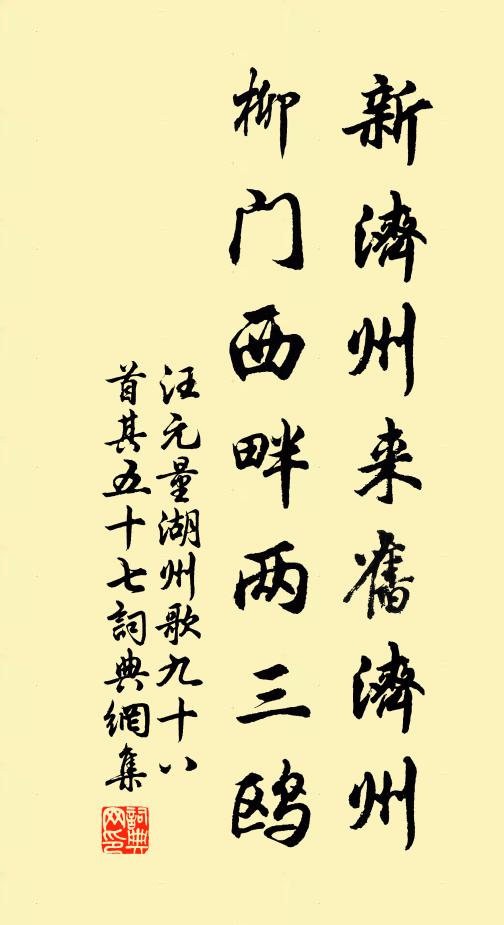 新濟州来舊濟州
柳门西畔两三鸥
汪元量湖州歌九十八
首其五十七詞典網集
詞典網印